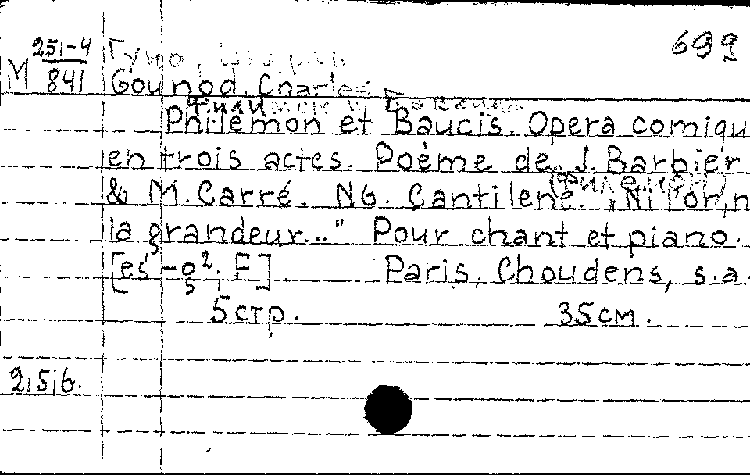 699
M 251-4/841
Гуно,
Gounod, Charles
Филимон и Бавкида
Philémon et Baucis. Opera comiqu
en trois actes. Poème de J. Barbier
& M. Carré. N6. Cantilene. „Ni l'or, n
la grandeur..." Pour chant et piano.
[es' - g². F] Paris, Choudens, s.a.
5 стр. 35 см.
2,5,6.